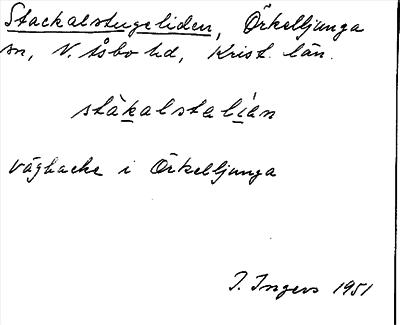 Stackalstugeliden, Örkelljunga
sn, N. Åsbo hd, Krist. län.
stàkalstaliən
väghacke i Örkelljunga
I. Ingers 1951